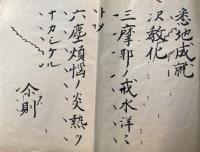 悉地成就
次教化
三摩耶ノ戒水洋々
トソ
六塵煩悩ノ炎熱ヲ
ナカシケル
余則